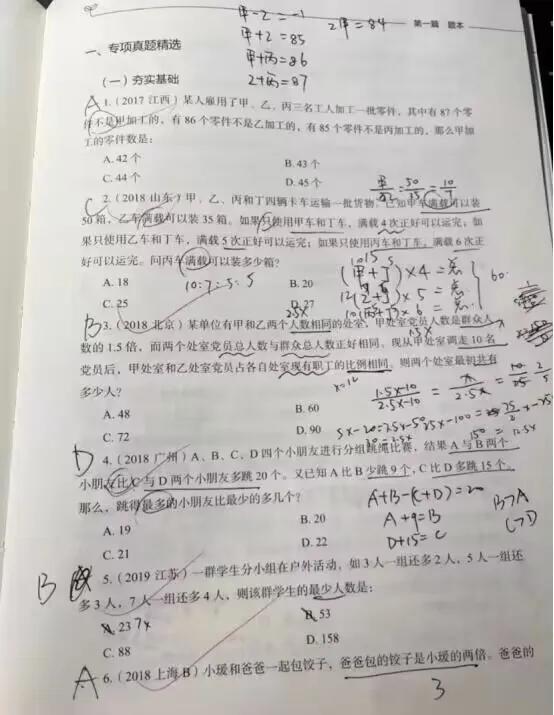 甲-2=-1
2甲=84
甲+2=85
甲+丙=86
2+丙=87
第一篇 题本
一、专项真题精选
（一）夯实基础
A
1.（2017 江西）某人雇用了甲、乙、丙三名工人加工一批零件，其中有 87 个零
件不是甲加工的，有 86 个零件不是乙加工的，有 85 个零件不是丙加工的，那么甲加
工的零件数是：
A. 42 个 B. 43 个
C. 44 个 D. 45 个
C
2.（2018 山东）甲、乙、丙和丁四辆卡车运输一批货物，已知甲车满载可以装
50 箱，乙车满载可以装 35 箱。如果只使用甲车和丁车，满载 4 次正好可以运完；如
果只使用乙车和丁车，满载 5 次正好可以运完；如果只使用丙车和丁车，满载 6 次正
好可以运完。问丙车满载可以装多少箱？
A. 18 B. 20
C. 25 D. 27
10:7:5:5
(甲+丁)×4=总
(乙+丁)×5=总
(丙+丁)×6=总
60
B
3.（2018 北京）某单位有甲和乙两个人数相同的处室，甲处室党员人数是群众人
数的 1.5 倍，而两个处室党员总人数与群众总人数正好相同。现从甲处室调走 10 名
党员后，甲处室和乙处室党员占各自处室现有职工的比例相同。则两个处室最初共有
多少人？
A. 48 B. 60
C. 72 D. 90
D
4.（2018 广州）A、B、C、D 四个小朋友进行分组跳绳比赛，结果 A 与 B 两个
小朋友比 C 与 D 两个小朋友多跳 20 个。又已知 A 比 B 少跳 9 个，C 比 D 多跳 15 个。
那么，跳得最多的小朋友比最少的多几个？
A. 19 B. 20
C. 21 D. 22
A+B-(C+D)=20
A+9=B
D+15=C
B>A
C>D
B
5.（2019 江苏）一群学生分小组在户外活动，如 3 人一组还多 2 人，5 人一组还
多 3 人，7 人一组还多 4 人，则该群学生的最少人数是：
A. 23 7x B. 53
C. 88 D. 158
A
6.（2018 上海 B）小瑗和爸爸一起包饺子，爸爸包的饺子是小瑗的两倍。爸爸的
3